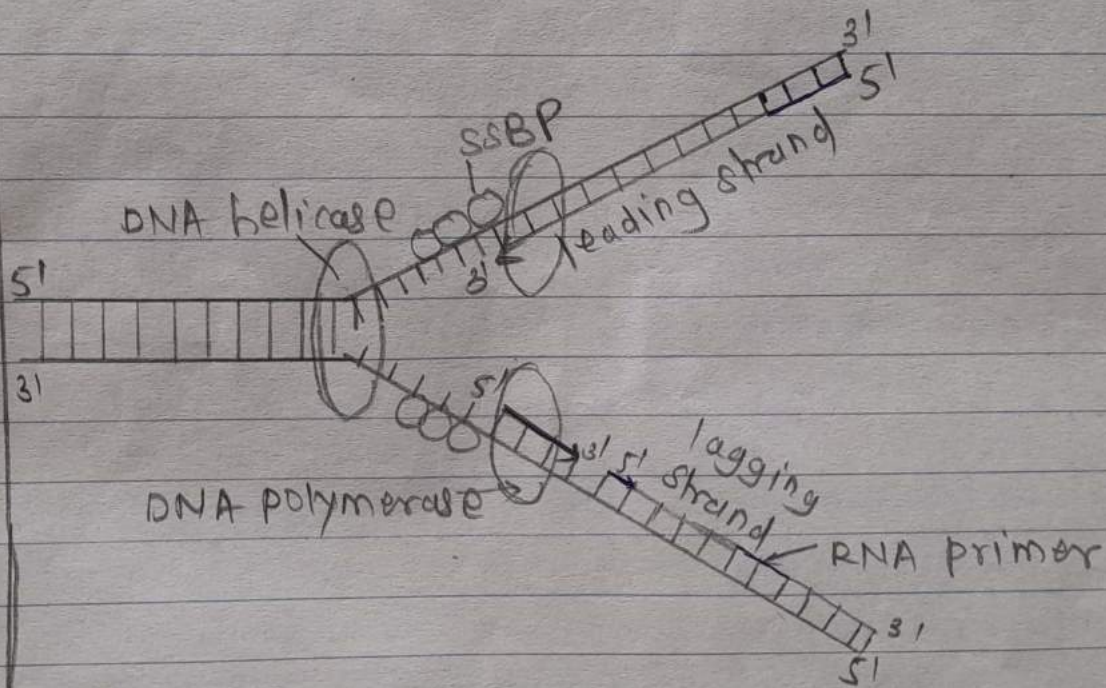 3'
5'
SSBP
leading strand
DNA helicase
5'
3'
3'
5'
3'
5'
lagging
strand
DNA polymerase
RNA primer
3'
5'